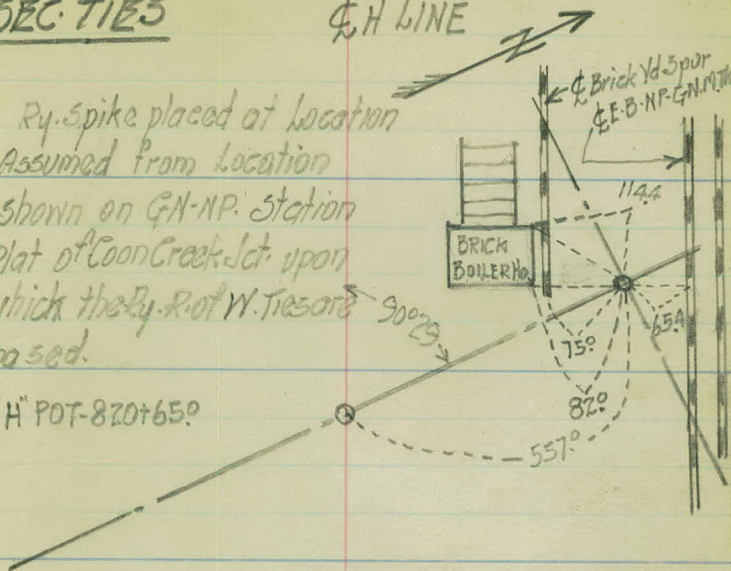 SEC. TIES
℄ H LINE
Ry. Spike placed at Location
Assumed from Location
shown on GN-NP. Station
Plat of Coon Creek Jct. upon
which the Ry. R. of W. Ties are
based.
"H" POT-820+65.0
℄ Brick Yd Spur
℄ E.B-NP-GN.M.
114.4
BRICK
BOILER Ho.
90°29'
65.4
75.0
82.0
557.0